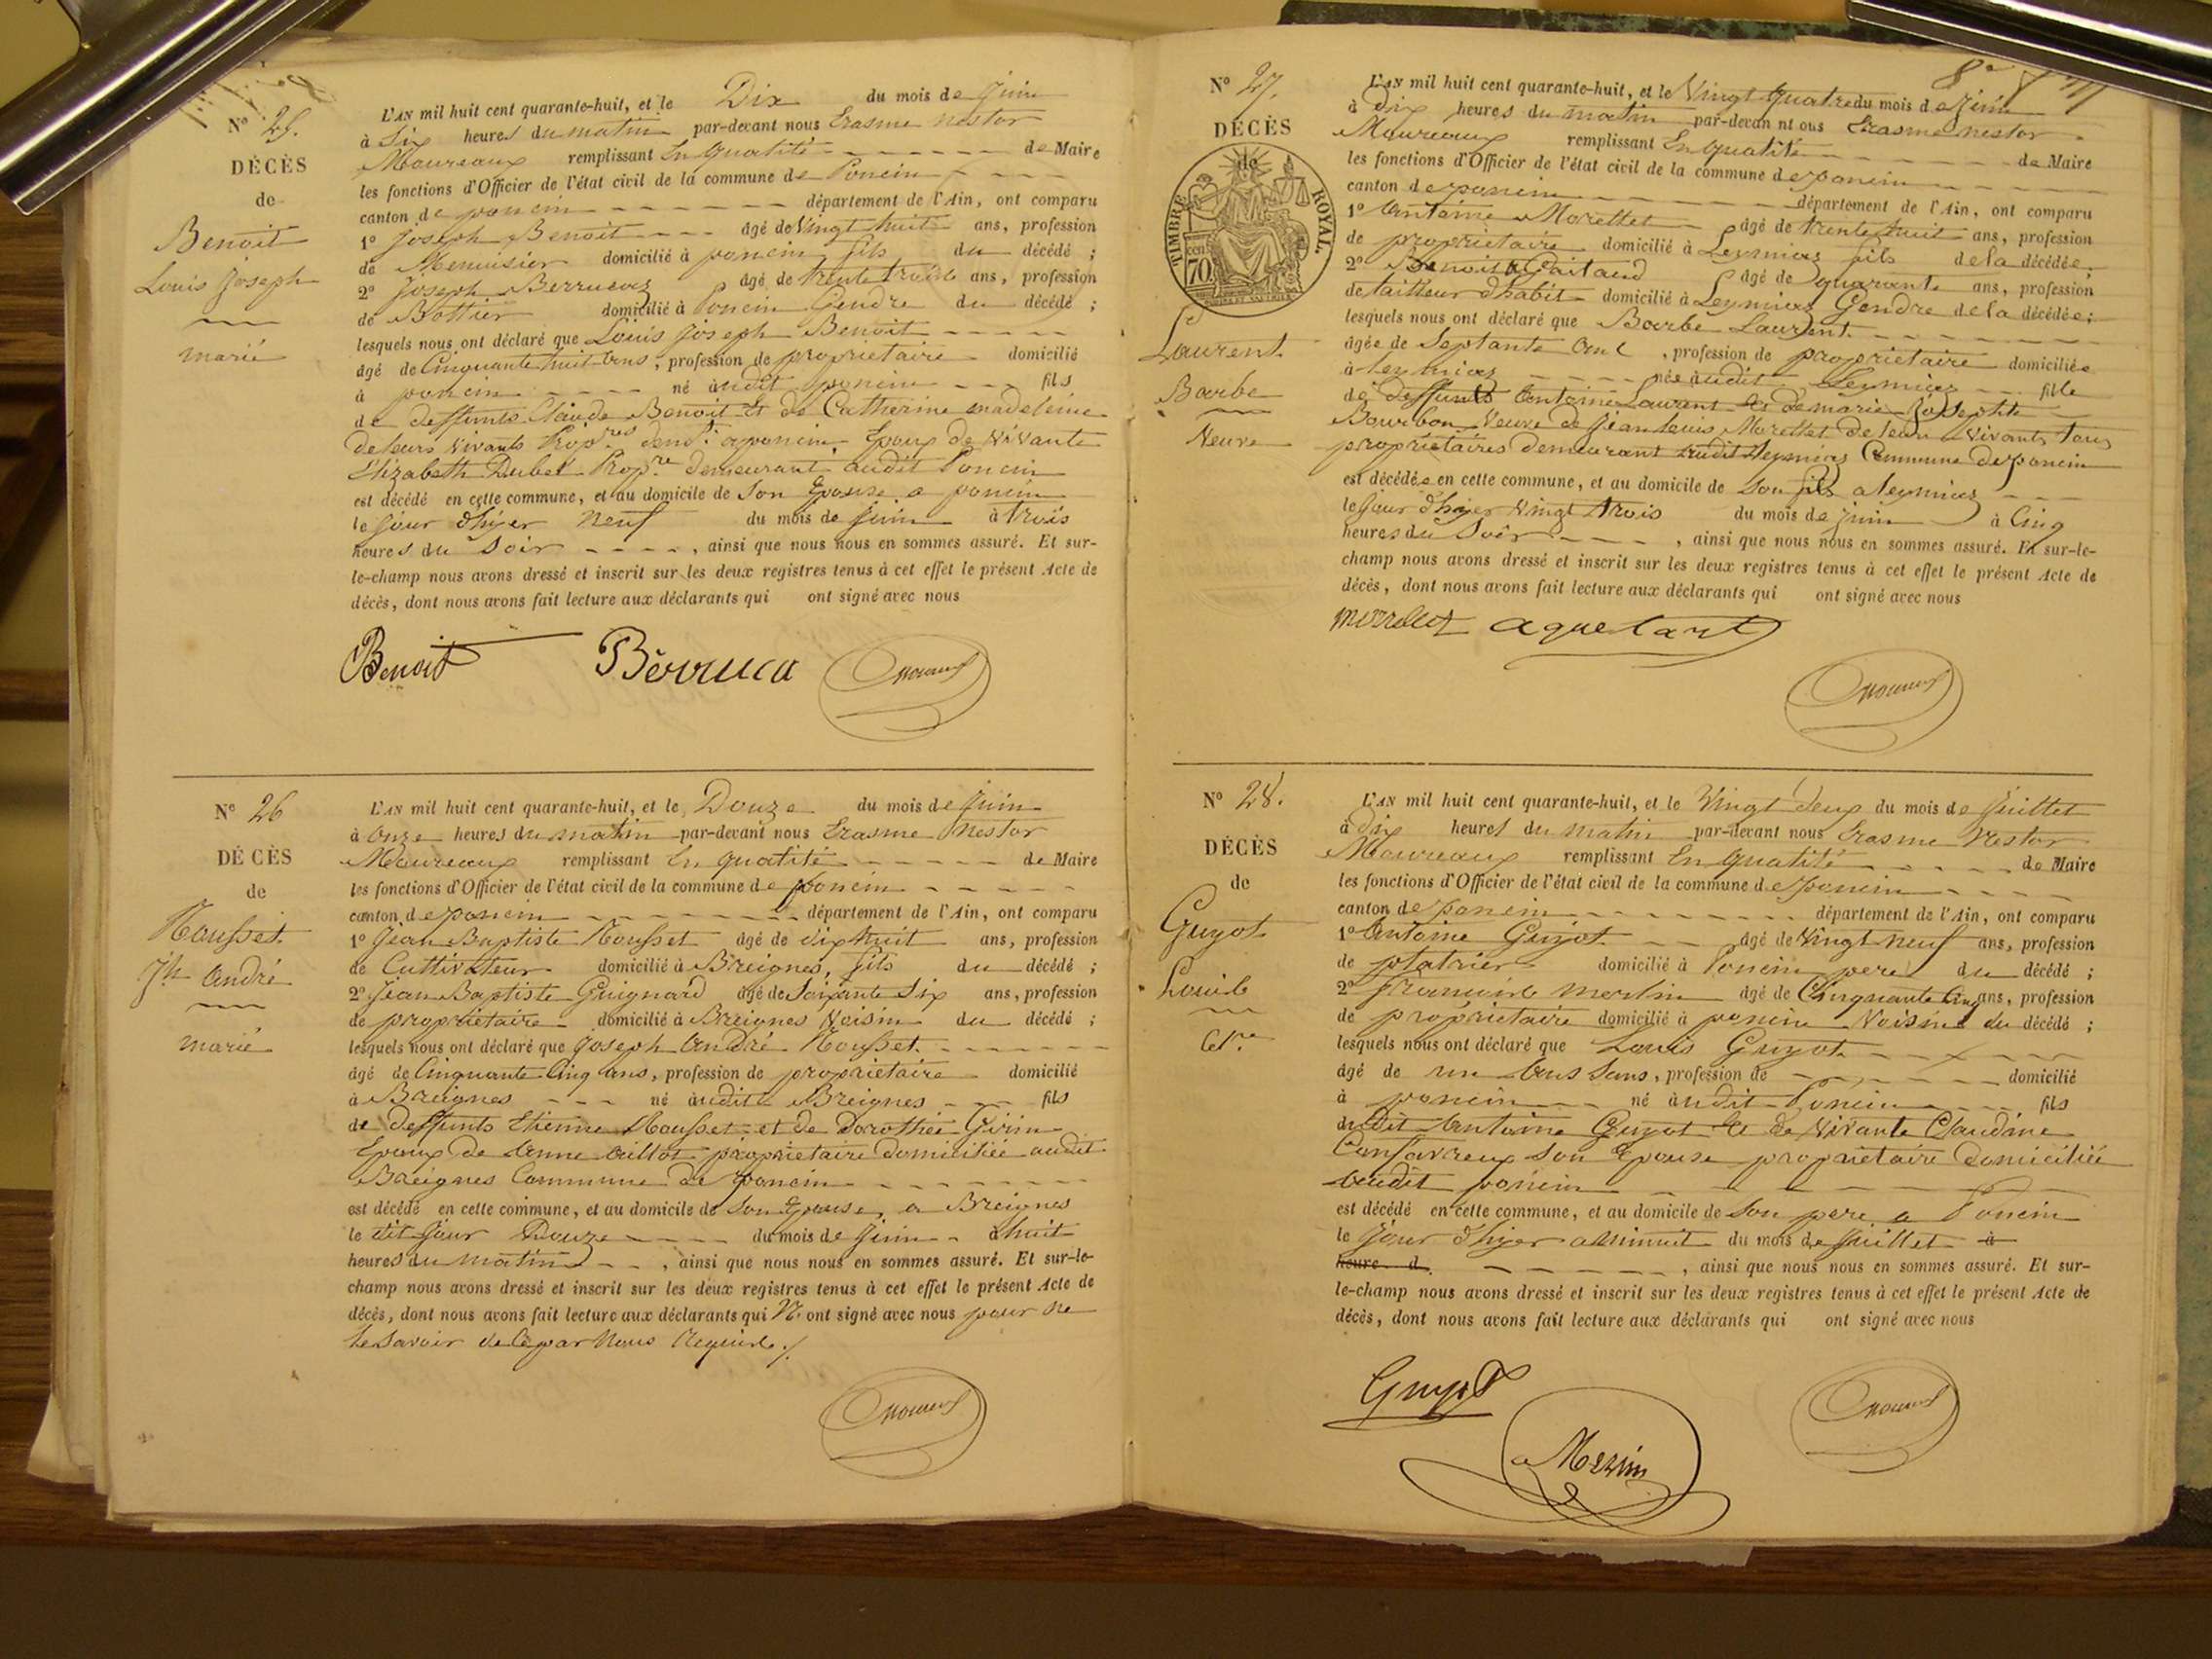 N° 25.
DÉCÈS
de
Benoit
Louis Joseph
marié
L'AN mil huit cent quarante-huit, et le Dix du mois de Juin
à Six heures du matin par-devant nous Erasme Nestor
Maureaux remplissant En qualité de Maire
les fonctions d'Officier de l'état civil de la commune de Poncin
canton de poncin département de l'Ain, ont comparu
1° Joseph Benoit âgé de Vingt huit ans, profession
de Menuisier domicilié à poncin fils du décédé ;
2° Joseph Berrucaz âgé de trente trois ans, profession
de Bottier domicilié à Poncin Gendre du décédé ;
lesquels nous ont déclaré que Louis Joseph Benoit
âgé de Cinquante huit ans, profession de propriétaire domicilié
à poncin né audit poncin fils
de deffunts Claude Benoit Et de Catherine madeleine
de leurs vivants Prop.res dem.t a poncin Epoux de Vivante
Elizabeth Dubet Prop.re demeurant audit Poncin
est décédé en cette commune, et au domicile de Son Epouse a poncin
le Jour d'hyer neuf du mois de Juin à trois
heures du Soir, ainsi que nous nous en sommes assuré. Et sur-
le-champ nous avons dressé et inscrit sur les deux registres tenus à cet effet le présent Acte de
décès, dont nous avons fait lecture aux déclarants qui ont signé avec nous
Benoit Bèrruca
N° 26
DÉCÈS
de
Housset
Jh André
marié
L'AN mil huit cent quarante-huit, et le Douze du mois de Juin
à onze heures du matin par-devant nous Erasme Nestor
Maureaux remplissant En qualité de Maire
les fonctions d'Officier de l'état civil de la commune de poncin
canton de poncin département de l'Ain, ont comparu
1° Jean Baptiste Housset âgé de dix huit ans, profession
de Cultivateur domicilié à Breignes, fils du décédé ;
2° Jean Baptiste Guignard âgé de Soixante Six ans, profession
de propriétaire domicilié à Breignes Voisin du décédé ;
lesquels nous ont déclaré que Joseph André Housset
âgé de Cinquante Cinq ans, profession de propriétaire domicilié
à Breignes né audit Breignes fils
de deffunts Etienne Housset et de Dorothée Girin
Epoux de Anne billot propriétaire domiciliée audit
Breignes Commune de poncin
est décédé en cette commune, et au domicile de Son Epouse, a Breignes
le dit Jour Douze du mois de Juin à huit
heures du matin, ainsi que nous nous en sommes assuré. Et sur-le-
champ nous avons dressé et inscrit sur les deux registres tenus à cet effet le présent Acte de
décès, dont nous avons fait lecture aux déclarants qui N'ont signé avec nous pour ne
le Savoir de ce par Nous Requis
N° 27.
DÉCÈS
de
TIMBRE ROYAL
70
Laurent
Barbe
Veuve
L'AN mil huit cent quarante-huit, et le Vingt quatre du mois de Juin
à Dix heures du matin par-devan nt ous Erasme Nestor
Maureaux remplissant En qualité de Maire
les fonctions d'Officier de l'état civil de la commune de poncin
canton de poncin département de l'Ain, ont comparu
1° Antoine Morettet âgé de trente huit ans, profession
de propriétaire domicilié à Leymiaz fils de la décédée ;
2° Benoit âgé de quarante ans, profession
de tailleur d'habit domicilié à Leymiaz Gendre de la décédée ;
lesquels nous ont déclaré que Barbe Laurent
âgée de Septante ans, profession de propriétaire domiciliée
à Leymiaz née audit Leymiaz fille
de deffunts Antoine Laurent et de marie Josephte
Bourbon Veuve de Jean louis Morettet de leurs Vivants tous
propriétaires demeurant audit Leymiaz Commune de poncin
est décédée en cette commune, et au domicile de Son fils a leymiaz
le Jour d'hyer Vingt trois du mois de Juin à Cinq
heures du Soir, ainsi que nous nous en sommes assuré. Et sur-le-
champ nous avons dressé et inscrit sur les deux registres tenus à cet effet le présent Acte de
décès, dont nous avons fait lecture aux déclarants qui ont signé avec nous
aquetant
N° 28.
DÉCÈS
de
Guyot
Louis
Cel.re
L'AN mil huit cent quarante-huit, et le Vingt deux du mois de Juillet
à dix heures du matin par-devant nous Erasme Nestor
Maureaux remplissant En qualité de Maire
les fonctions d'Officier de l'état civil de la commune de poncin
canton de poncin département de l'Ain, ont comparu
1° Antoine Guyot âgé de Vingt neuf ans, profession
de platrier domicilié à Poncin pere du décédé ;
2° françois merlin âgé de Cinquante Cinq ans, profession
de propriétaire domicilié à poncin Voisin du décédé ;
lesquels nous ont déclaré que Louis Guyot
âgé de un ans Sans, profession de domicilié
à poncin né audit Poncin fils
dudit Antoine Guyot Et de Vivante Claudine
Convavreux Son Epouse propriétaire domiciliée
audit poncin
est décédé en cette commune, et au domicile de Son pere a Poncin
le Jour d'hyer a minuit du mois de Juillet à
heure d, ainsi que nous nous en sommes assuré. Et sur-
le-champ nous avons dressé et inscrit sur les deux registres tenus à cet effet le présent Acte de
décès, dont nous avons fait lecture aux déclarants qui ont signé avec nous
Guyot